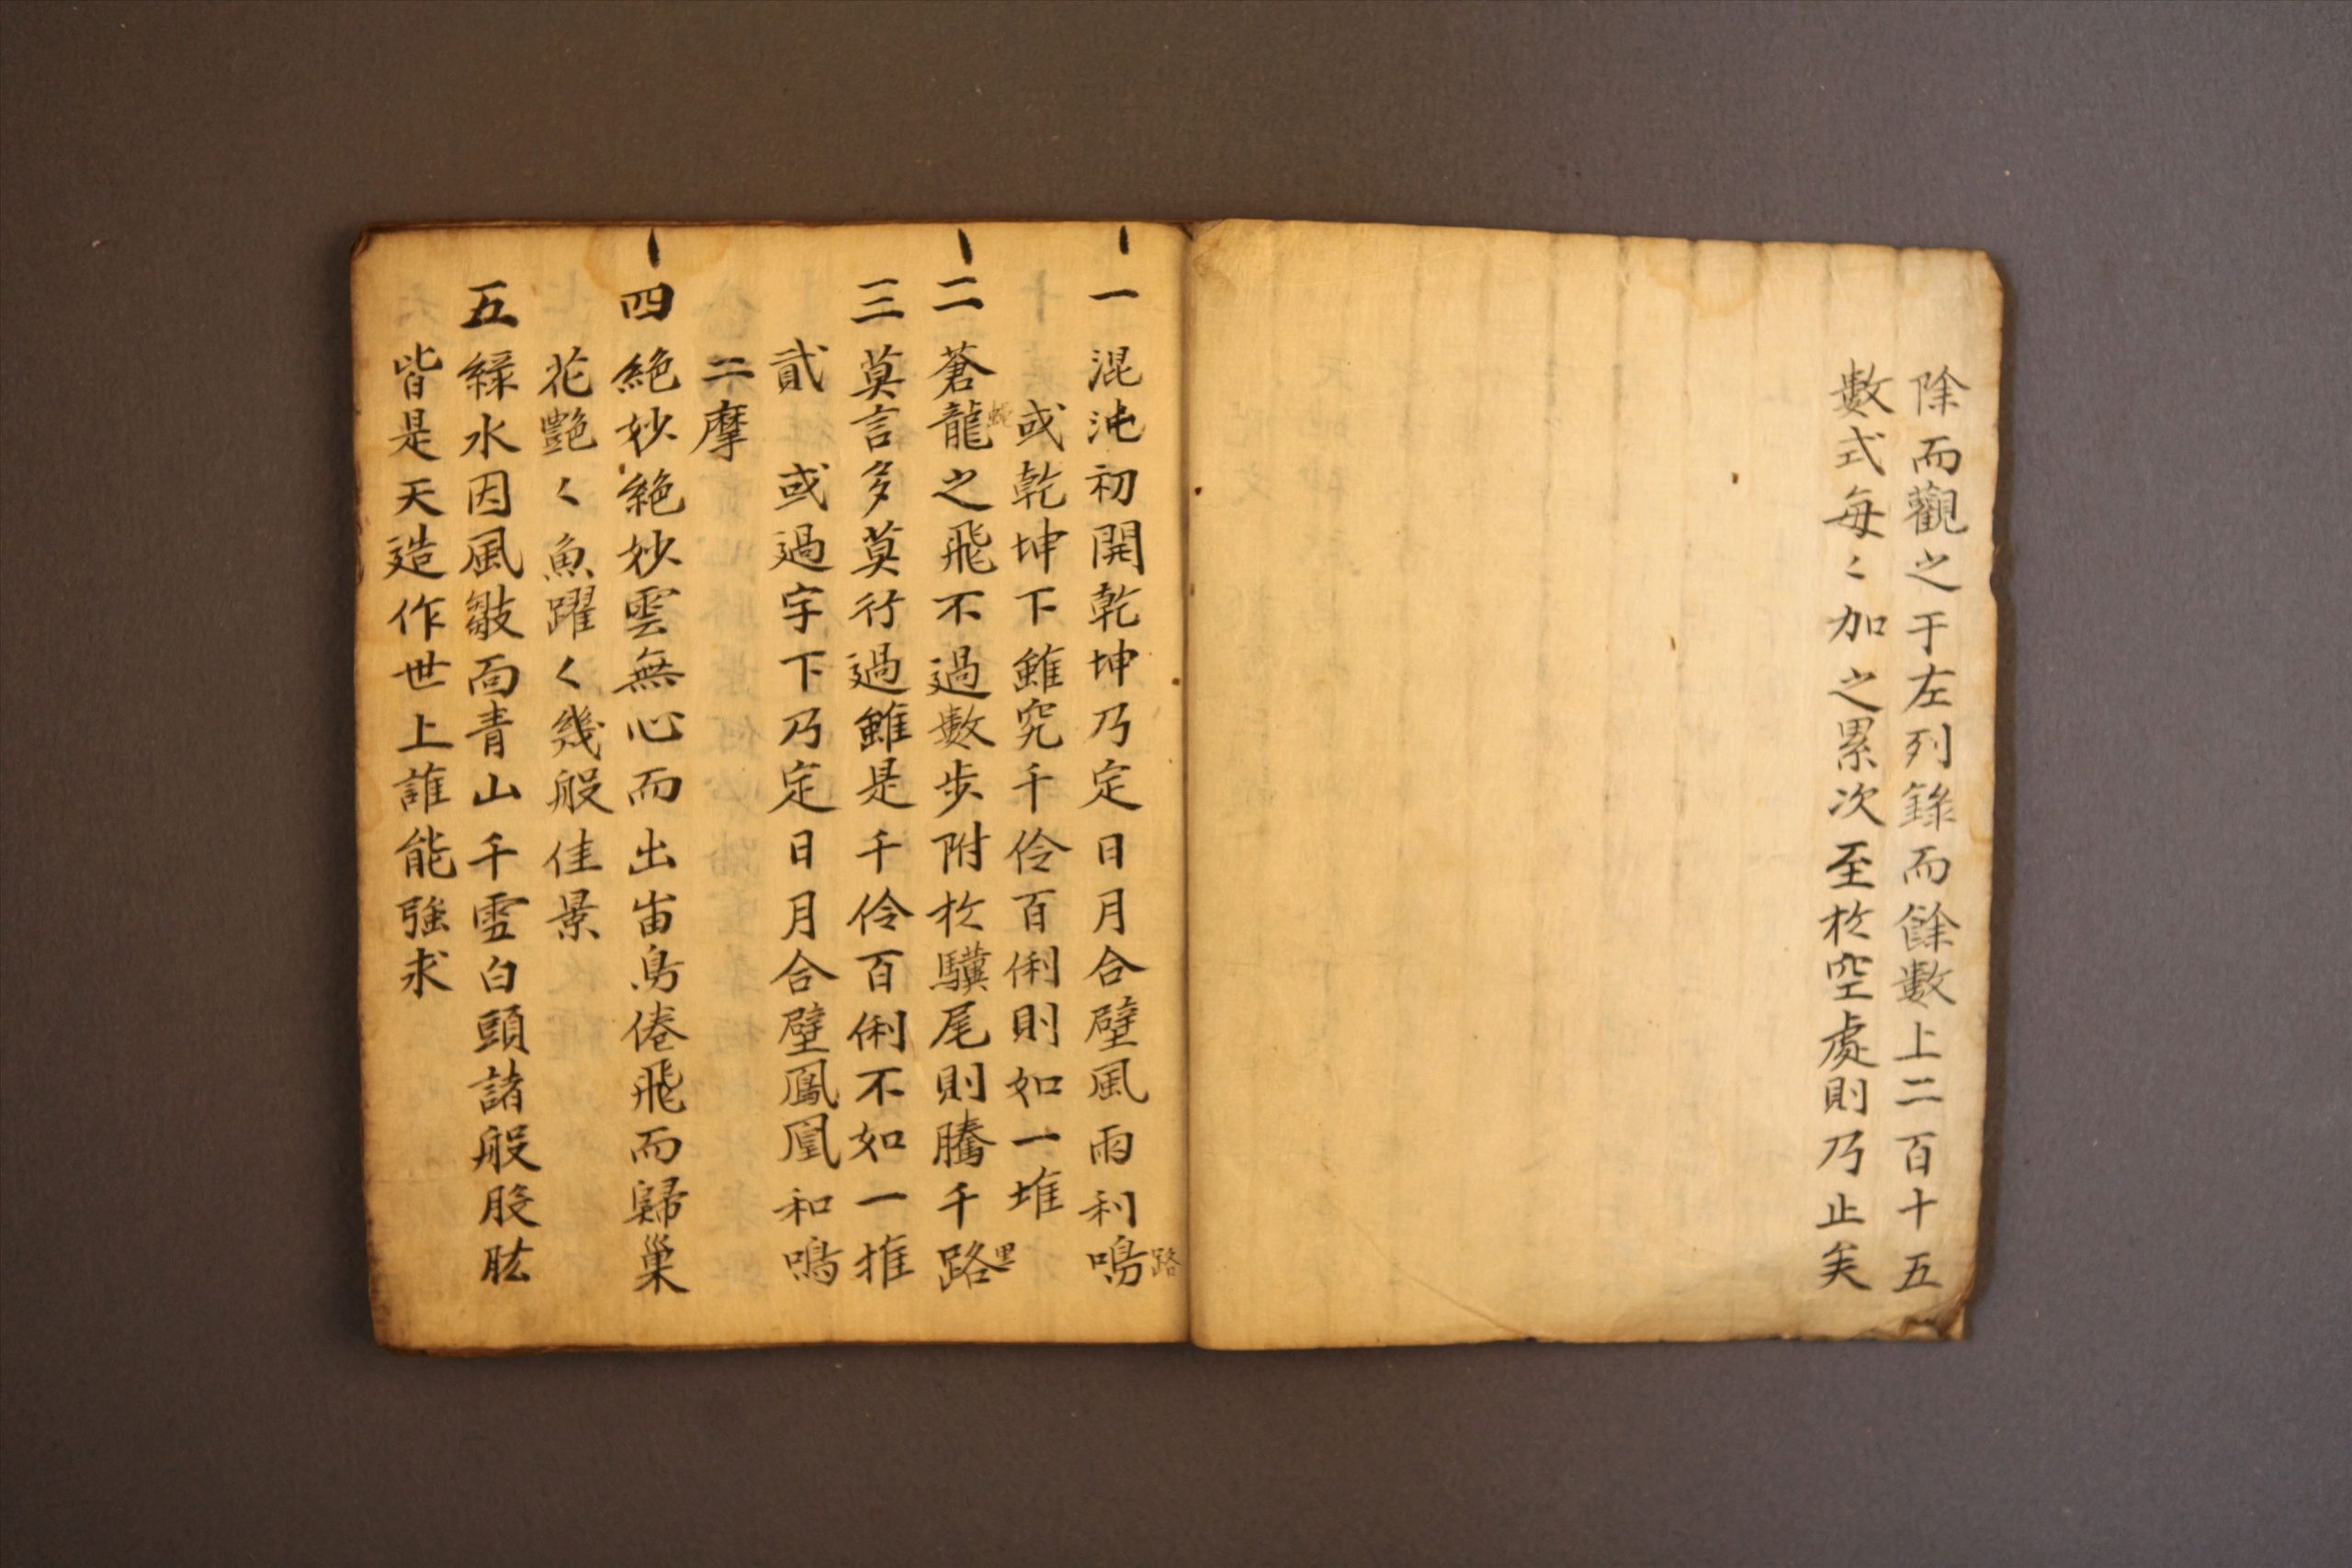 除而觀之于左列錄而餘數上二百十五
數式每〻加之累次至於空處則乃止矣
一混沌初開乾坤乃定日月合壁風雨利鳴路
或乾坤下雖究千伶百俐則如一堆
二蒼龍之飛不過數步附於驥尾則騰千路里
三莫言多莫行過雖是千伶百俐不如一推
貳 或過宇下乃定日月合壁鳳凰和鳴
二摩
四絶妙絶妙雲無心而出宙鳥倦飛而歸巢
花艶〻魚躍〻幾般佳景
五緑水因風皺面青山千雪白頭諸般股肱
皆是天造作世上誰能強求